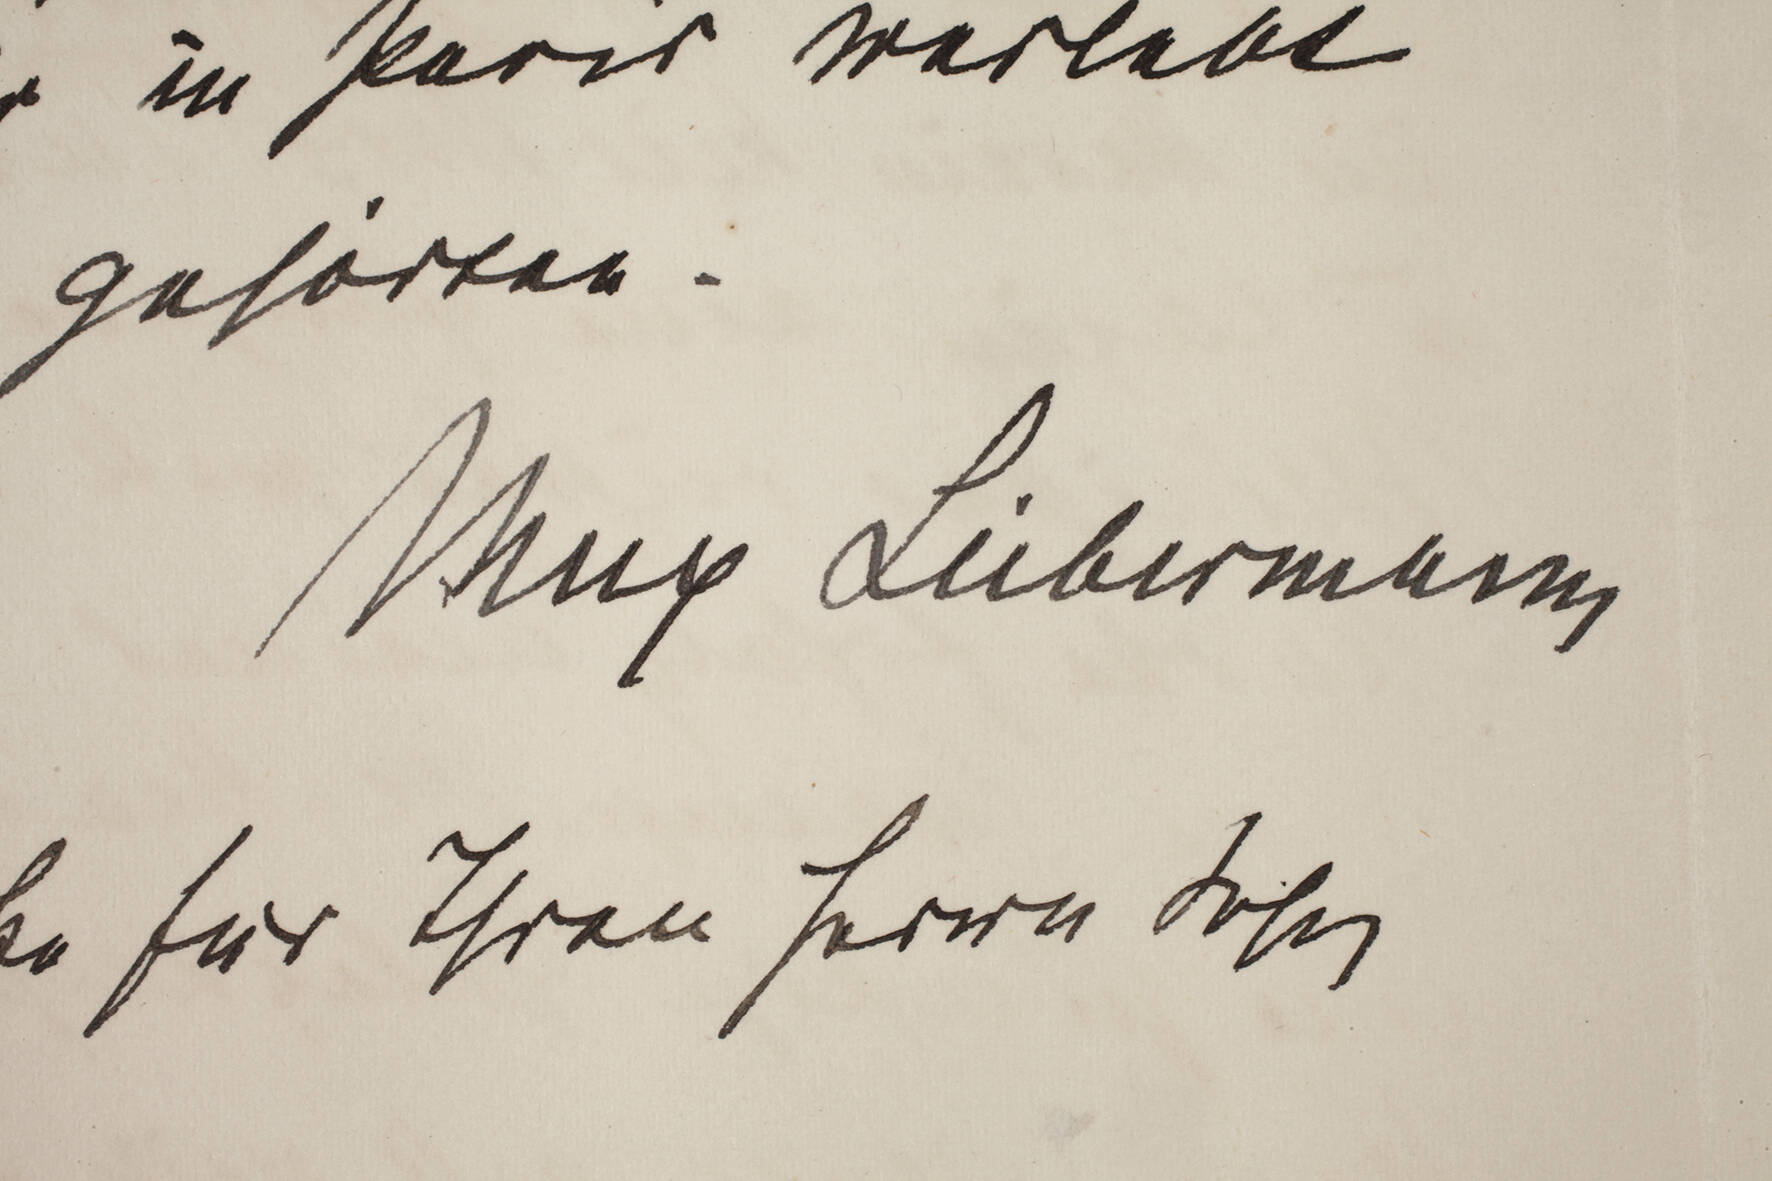 in Paris verlebt
gehörten.
Max Liebermann
für Ihren Herrn Sohn